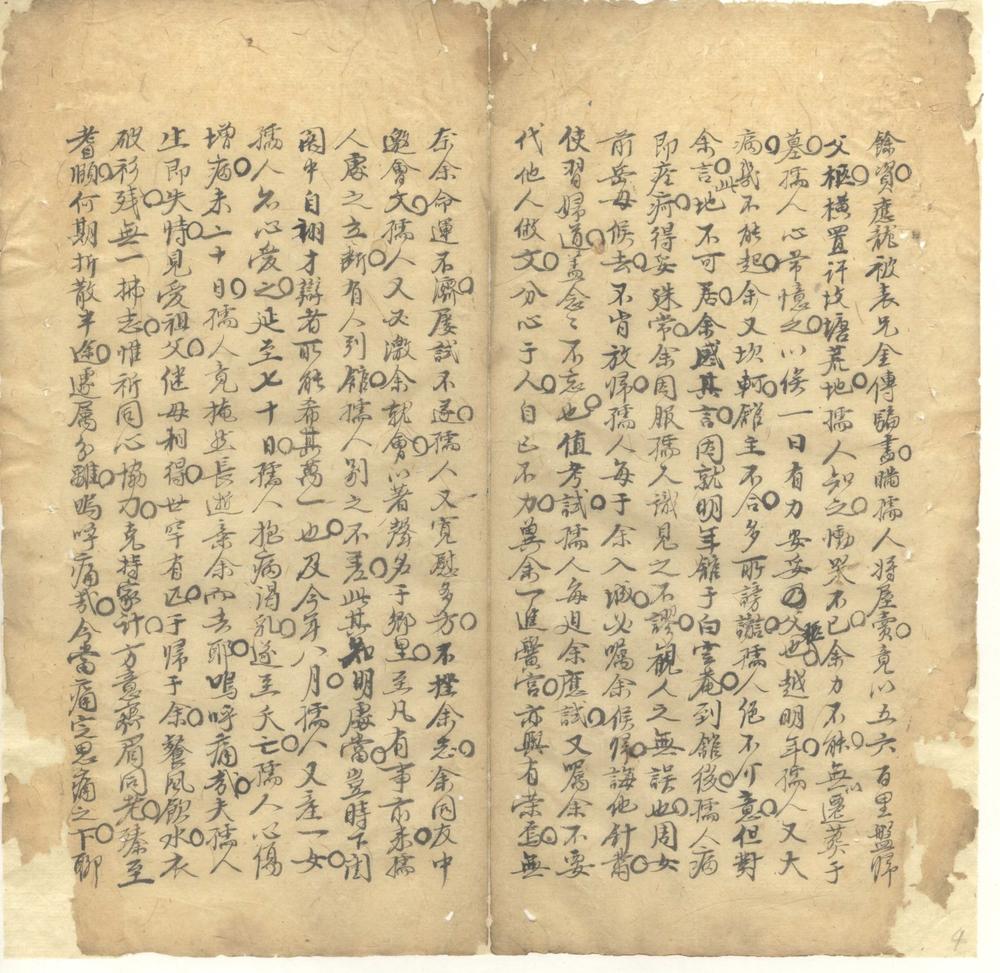 餘資應龍被表兄金傳騙書賭孺人將屋賣竟以五六百里盤歸
父柩橫置許坟塘荒地孺人知之慟哭不已余力不能無以遷葬于
墓孺人心常憶之以俟一日有力安妥乃父柩也越明年孺人又大
病幾不能起余又坎軻館主不合多所謗譫孺人絕不介意但對
余言此地不可居余感其言因就明年館于白雲庵到館後孺人病
即痊痾得妥殊常余因服孺人識見之不謬觀人之無誤也周女
前岳母候去不肯放歸孺人每于余入城必囑余候歸誨他針黹
使習婦道盖念念不忘也值考試孺人每迫余應試又囑余不要
代他人做文分心于人自己不力兾余一進黌宮亦與有荣焉無
奈余命運不濟屡試不遂孺人又寛慰多方不挫余志余同友中
邀會文孺人又必激余就會以著聲名于鄉里至凡有事前来孺
人處之立斷有人到館孺人别之不差此其知明處當豈時下閨
閣中自詡才辯者所能希其萬一也及今年八月孺人又產一女
孺人尽心愛之延至七十日孺人抱病謁乳遂至夭亡孺人心傷
增病未二十日孺人竟掩然長逝棄余而去耶嗚呼痛哉夫孺人
生即失恃見愛祖父継母相得世罕有匹于歸于余餐風飲水衣
破衫残無一拂志惟祈同心協力克持家計方意齊眉同老臻至
耆頤何期折散半途遽属分離嗚呼痛哉今當痛定思痛之下聊